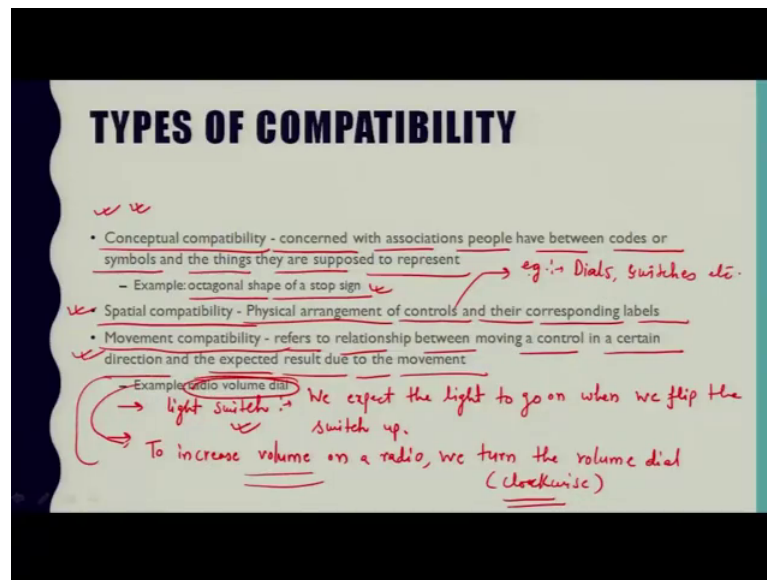 TYPES OF COMPATIBILITY
• Conceptual compatibility - concerned with associations people have between codes or
symbols and the things they are supposed to represent
eg :→ Dials, switches etc.
– Example: octagonal shape of a stop sign
• Spatial compatibility - Physical arrangement of controls and their corresponding labels
• Movement compatibility - refers to relationship between moving a control in a certain
direction and the expected result due to the movement
– Example: radio volume dial
→ light switch :→ We expect the light to go on when we flip the
switch up.
To increase volume on a radio, we turn the volume dial
(clockwise)